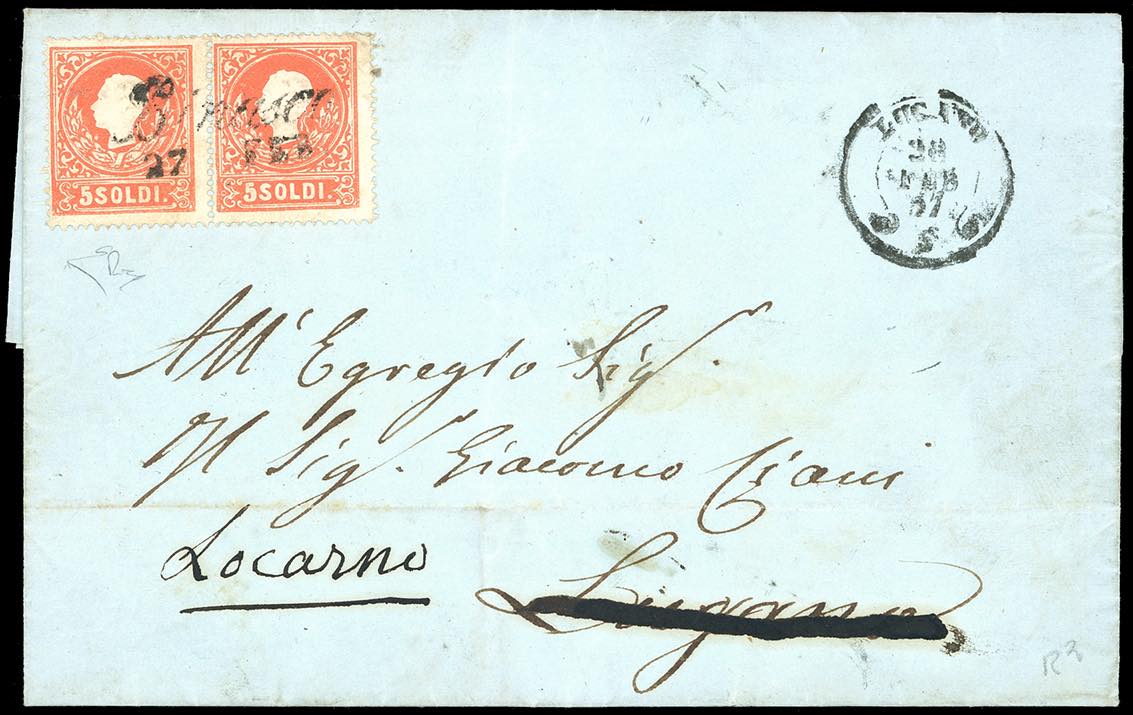 5 SOLDI. 5 SOLDI.
27 FEB
LUGANO
28
FEB
All' Egregio Sig.
Il Sig. Giacomo Ciani
Locarno
Lugano